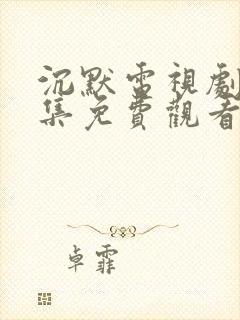 沉默電視劇
集免費觀看
卓霏